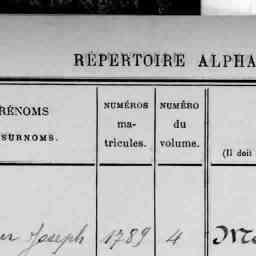 RÉPERTOIRE ALPHA
RÉNOMS
SURNOMS.
NUMÉROS
ma-
tricules.
NUMÉRO
du
volume.
(Il doit
Joseph 1789 4